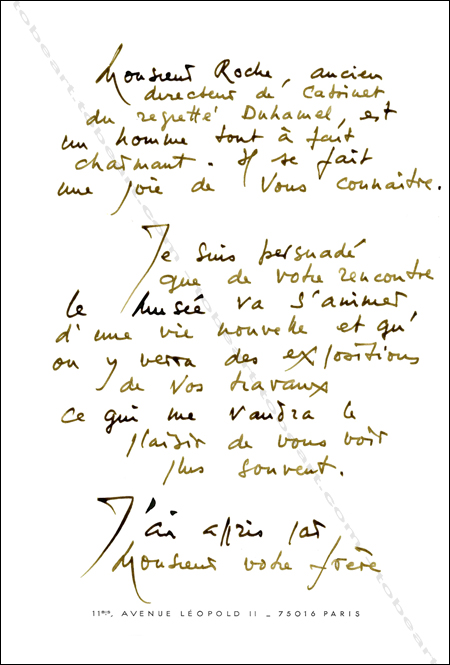 Monsieur Roche, ancien
directeur de Cabinet
du regretté Duhamel, est
un homme tout à fait
charmant. Il se fait
une joie de Vous connaître.
Je suis persuadé
que de votre rencontre
le musée va s'animer
d'une vie nouvelle et qu'
on y verra des expositions
de Vos travaux
ce qui me vaudra le
plaisir de vous voir
plus souvent.
J'ai appris par
Monsieur votre frère
11 BIS, AVENUE LÉOPOLD II _ 75016 PARIS